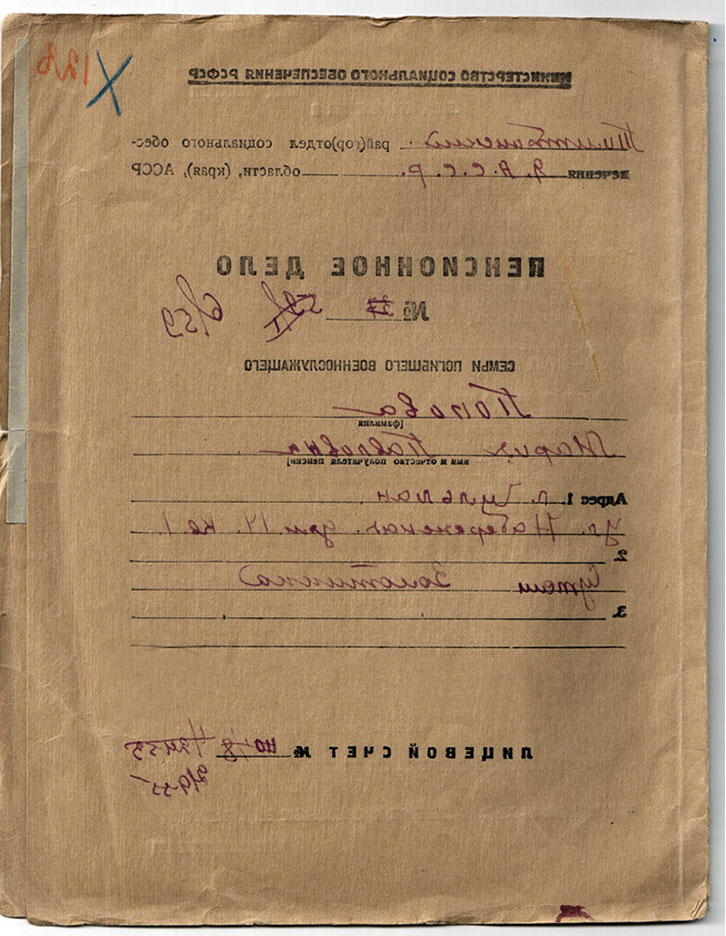 МИНИСТЕРСТВО СОЦИАЛЬНОГО ОБЕСПЕЧЕНИЯ РСФСР
рай(гор)отдел социального обес-
печения Я. А. С. С. Р. области, (края), АССР
ПЕНСИОННОЕ ДЕЛО
№ 6/59
СЕМЬИ ПОГИБШЕГО ВОЕННОСЛУЖАЩЕГО
Попова
(фамилия
Мария Павловна
имя и отчество получателя пенсии)
Адрес 1. п. Чульман
ул. Набережная дом 14. кв 1.
2.
Золотинка)
3.
ЛИЦЕВОЙ СЧЕТ №